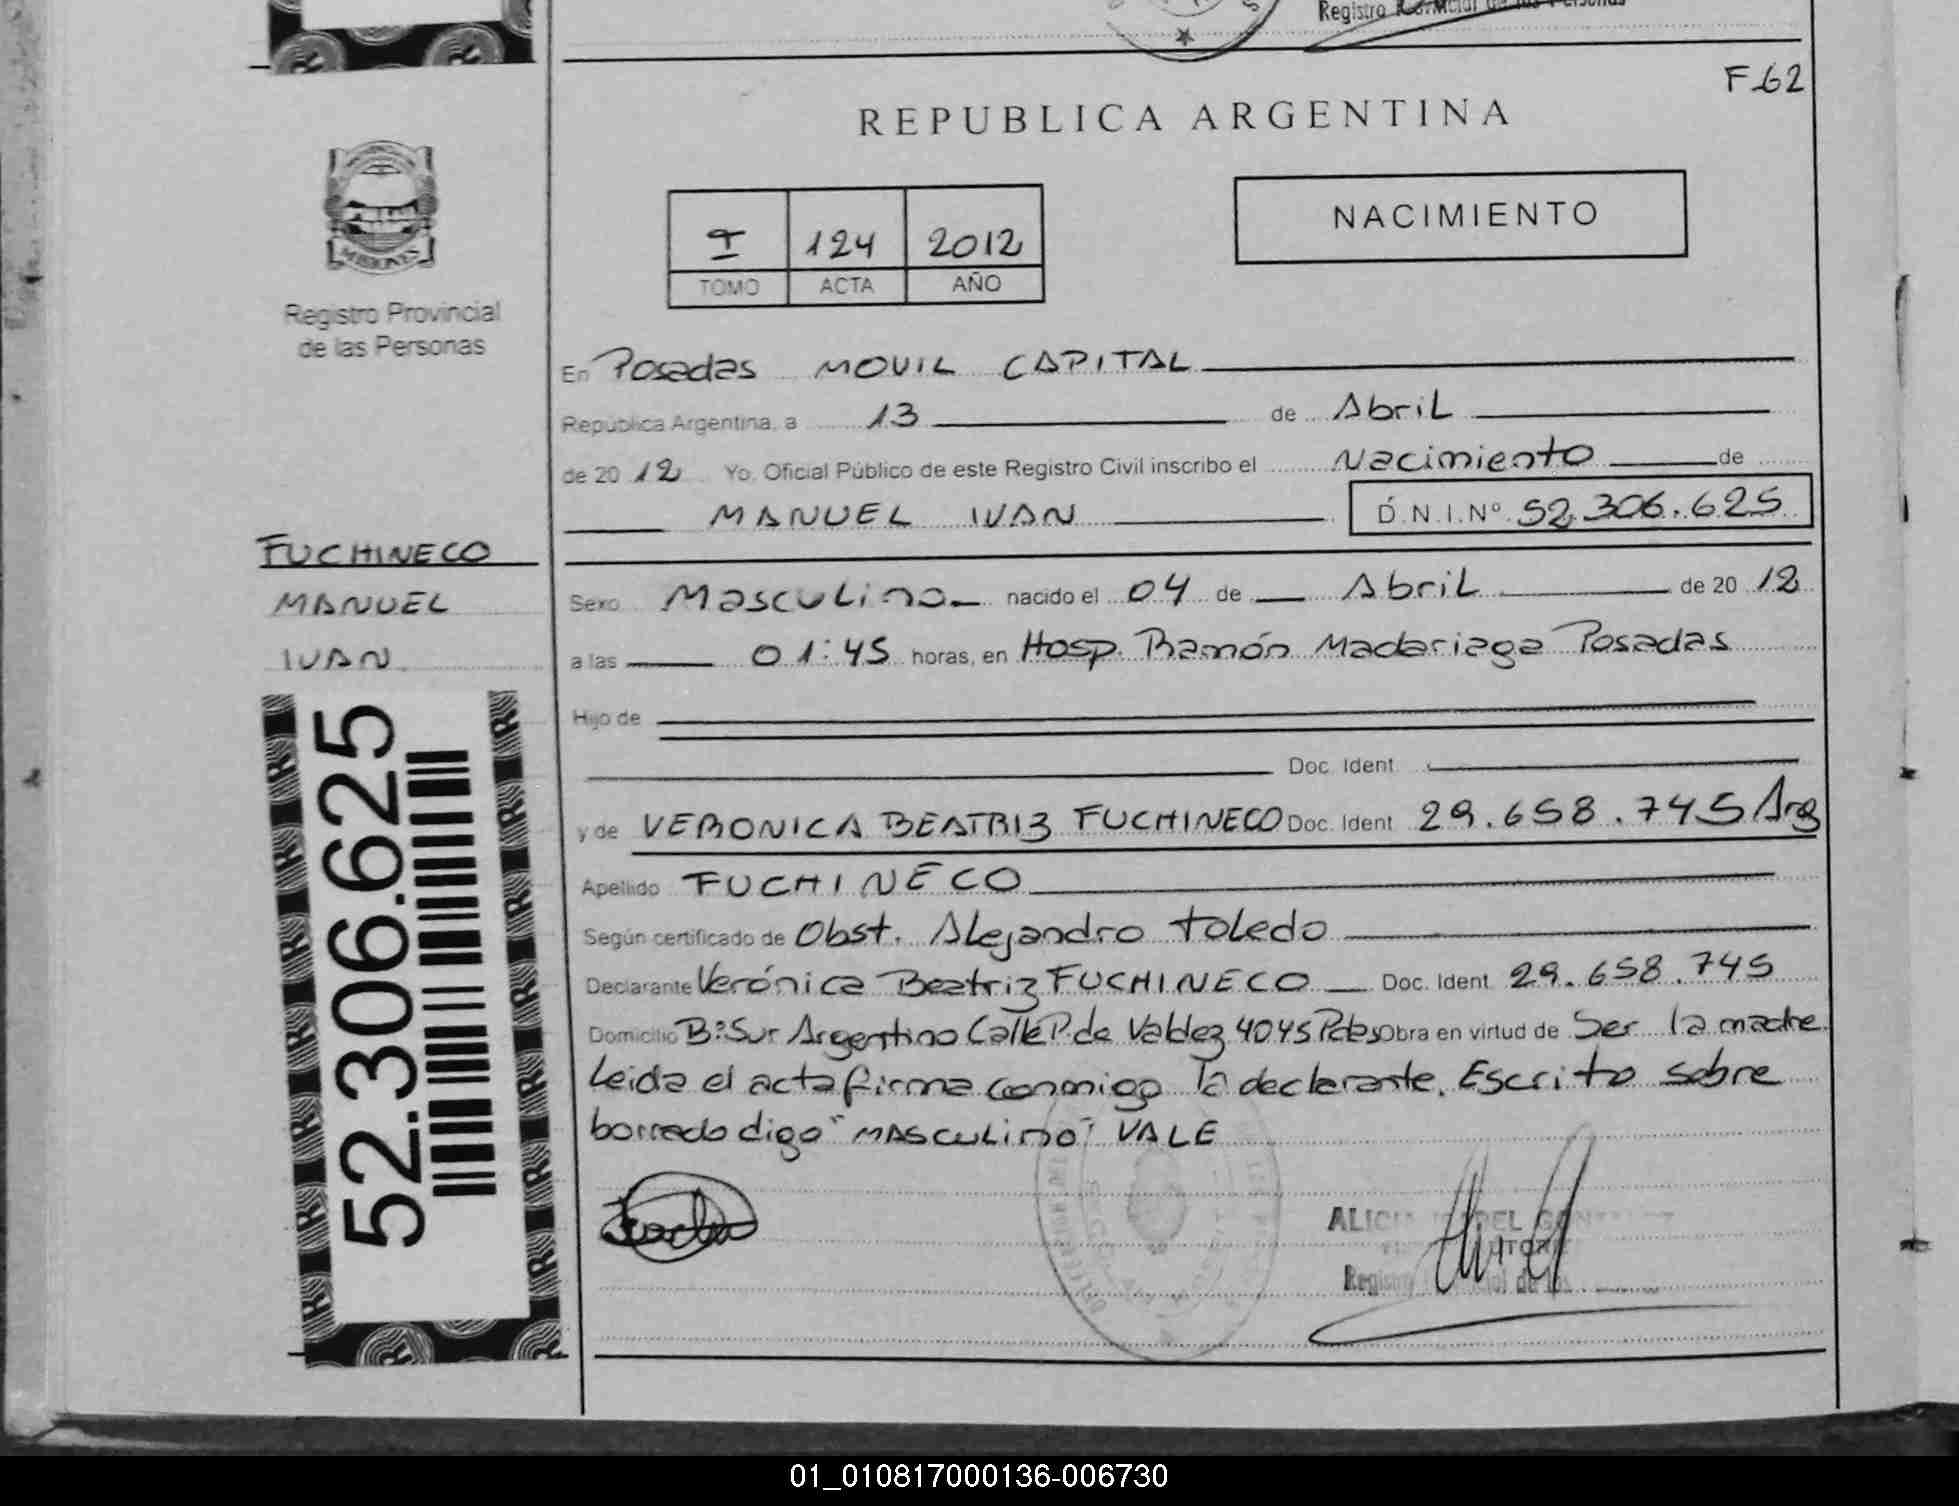 Registro Provincial de las Personas
F-62
REPUBLICA ARGENTINA
MISIONES
Registro Provincial
de las Personas
I 124 2012
TOMO ACTA AÑO
NACIMIENTO
En Posadas MOVIL CAPITAL
República Argentina, a 13 de Abril
de 2012 Yo, Oficial Público de este Registro Civil inscribo el Nacimiento de
MANUEL IVAN D.N.I.Nº 52.306.625
FUCHINECO
MANUEL
IVAN
Sexo Masculino nacido el 04 de Abril de 2012
a las 01:45 horas, en Hosp. Ramón Madariaga Posadas
Hijo de
Doc. Ident.
y de VERONICA BEATRIZ FUCHINECO Doc. Ident. 29.658.745 Arg
Apellido FUCHINECO
Según certificado de Obst. Alejandro Toledo
Declarante Verónica Beatriz FUCHINECO Doc. Ident. 29.658.745
Domicilio Bº Sur Argentino Calle P. de Valdez 4045 Pdas Obra en virtud de Ser la madre
Leida el acta firma conmigo la declarante. Escrito sobre
borrado digo "MASCULINO" VALE
52.306.625
ALICIA
Registro
01_010817000136-006730